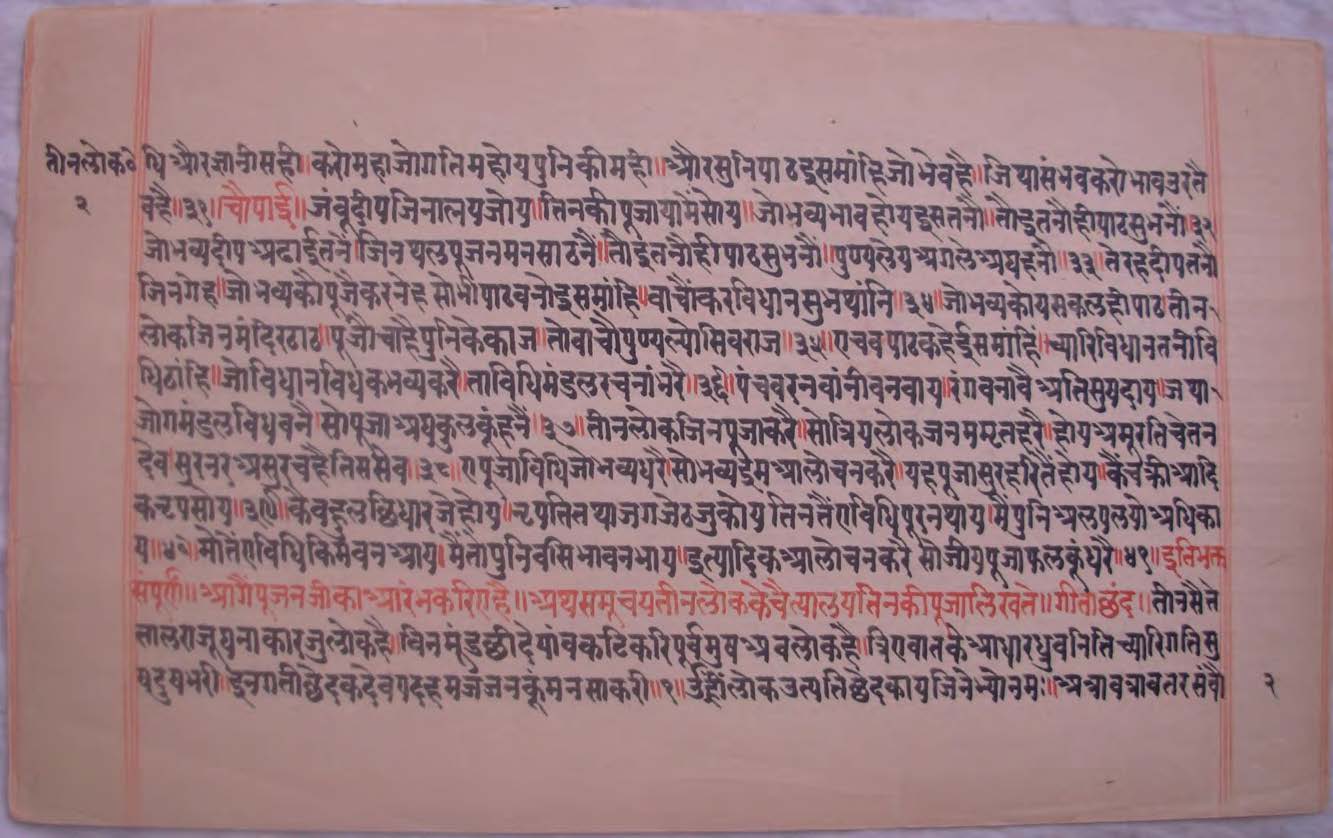 तीनलोक० धि और ज्ञानी सही॥ करो महा जोग तिम होय पुनि की मही॥ और सुनि पाठ इस मांहि जो भेव है॥ जिथा संभव करो भाव उर तै
२ व है॥३१॥ चौपाई॥ जंबूदीप जिनालय जोय॥ तिनकी पूजा यामें सोय॥ जो भव्य भाव होय इस तनौ॥ तौ इतनौ ही पाठ सु भनौ॥३२
जो भव्य दीप अढाई तनें॥ जिन थल पूजन मन सा ठनै॥ तौ इतनौ ही पाठ सु भनौ॥ पुण्य लेय अगले अघ हनौ॥३३॥ तेरह दीप तनौ
जिन गेह॥ जो भव्य कौ पूजै कर नेह सो भी पाठ वनो इस मांहि॥ वाचौ कर विधान सुभ थांनि॥३४॥ जो भव्य कोय सकल ही पाठ तीन
लोक जिन मंदिर ठाठ॥ पूजौ चाहै पुनि के काज॥ तो वाचौ पुण्य ल्यो सिवराज॥३५॥ ए चव पाठ कहे ई समांहिं॥ च्यारि विधान तनी वि
धि ठांहि॥ जो विधान विध क भव्य करै॥ ता विधि मंडल रचनां भरै॥३६॥ पंच वरन वांनी वनवाय॥ रंग वनावै अति सुषदाय॥ जथा
जोग मंडल विध वनै॥ सो पूजा अघ कुल कूं हनैं॥३७॥ तीन लोक जिन पूजा करै॥ सो त्रिय लोक जनम मृत हरै॥ होय अमूरति चेतन
देव॥ सुर नर असुर चहै तिस सेव॥३८॥ ए पूजा विधि जो भव्य धरै॥ सो भव्य ईम आलोचन करै॥ यह पूजा सुर हरि तैं होय॥ कै चक्री आदि
क नृप सोय॥३९॥ के वहु लछि धार जे होय॥ नृपति तथा जग जेठ जु कोय तिन तैं ए विधि पूरन थाय॥ मैं पुनि अलप लयो अधिका
य॥४०॥ मो तें ए विधि किम वन आय॥ मैं तो पुनि वसि भावन भाय॥ इत्यादिक आलोचन करै सो जीय पूजा फल कूं धरै॥४१॥ इति भक्त
संपूर्ण॥ आगैं पूजन जी का आरंभ करिए है॥ अथ समुचय तीन लोक के चैत्यालय तिनकी पूजा लिखते॥ गीता छंद॥ तीन सै ते
ताल राजू घनाकार जु लोक है॥ विन मूंड छीदे पांव कटि करि पूर्व मुष अवलोक है॥ त्रिए वात के आधार ध्रुव निति च्यारि गति सु
ष दुष भरी॥ इन गती छेदक देव पद हम जजन कूं मनसा करी॥१॥ उँ ह्रीं लोक उत्पति छेदकाय जिनेभ्यो नमः॥ अत्रावत्रावतर संवौ २